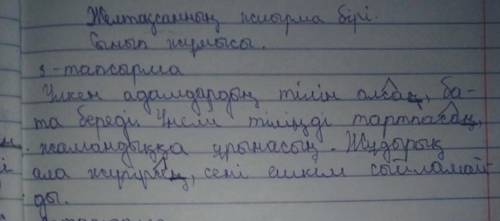 Желтоқсанның жиырма бірі.
Сынып жұмысы.
3-тапсырма
Үлкен адамдардың тілін алсаң, ба-
та береді. Үнемі тіліңді тартпасаң,
жамандыққа ұрынасың. Жұдырық
ала жүгірсең, сені ешкім сыйламай-
ды.